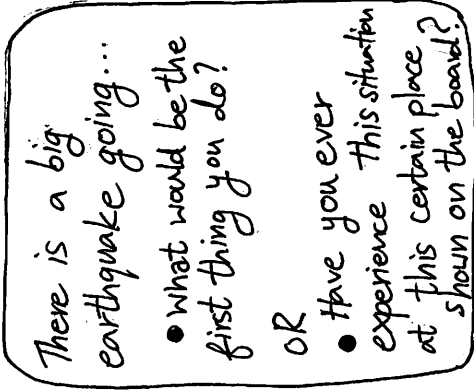 There is a big
earthquake going...
• What would be the
first thing you do?
OR
• Have you ever
experience this situation
at this certain place
shown on the board?